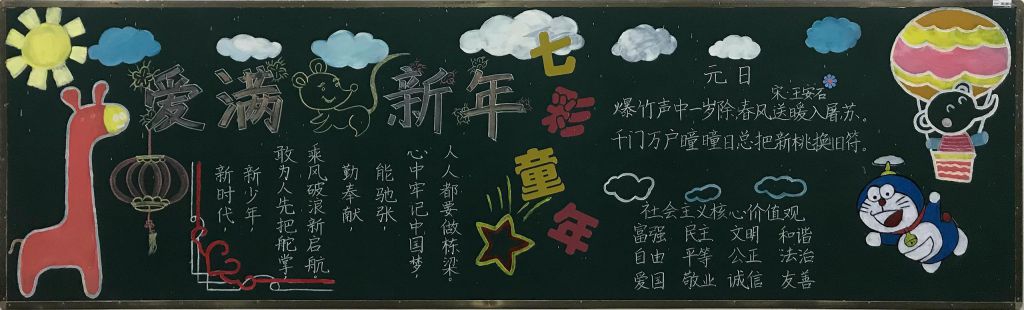 爱满新年
七彩童年
新时代,
新少年,
敢为人先把舵掌,
乘风破浪新启航。
勤奉献,
能驰张,
心中牢记中国梦,
人人都要做栋梁。
元日
宋:王安石
爆竹声中一岁除,春风送暖入屠苏。
千门万户曈曈日总把新桃换旧符。
社会主义核心价值观
富强 民主 文明 和谐
自由 平等 公正 法治
爱国 敬业 诚信 友善